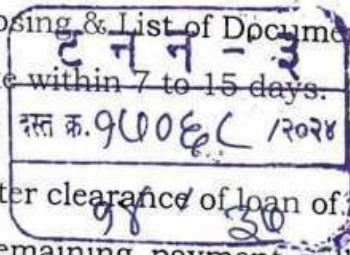 osing & List of Docume
ट न न - ३
e within 7 to 15 days.
दस्त क्र. १७०६८ /२०२४
ter clearance of loan of
१४ ३०
emaining payment